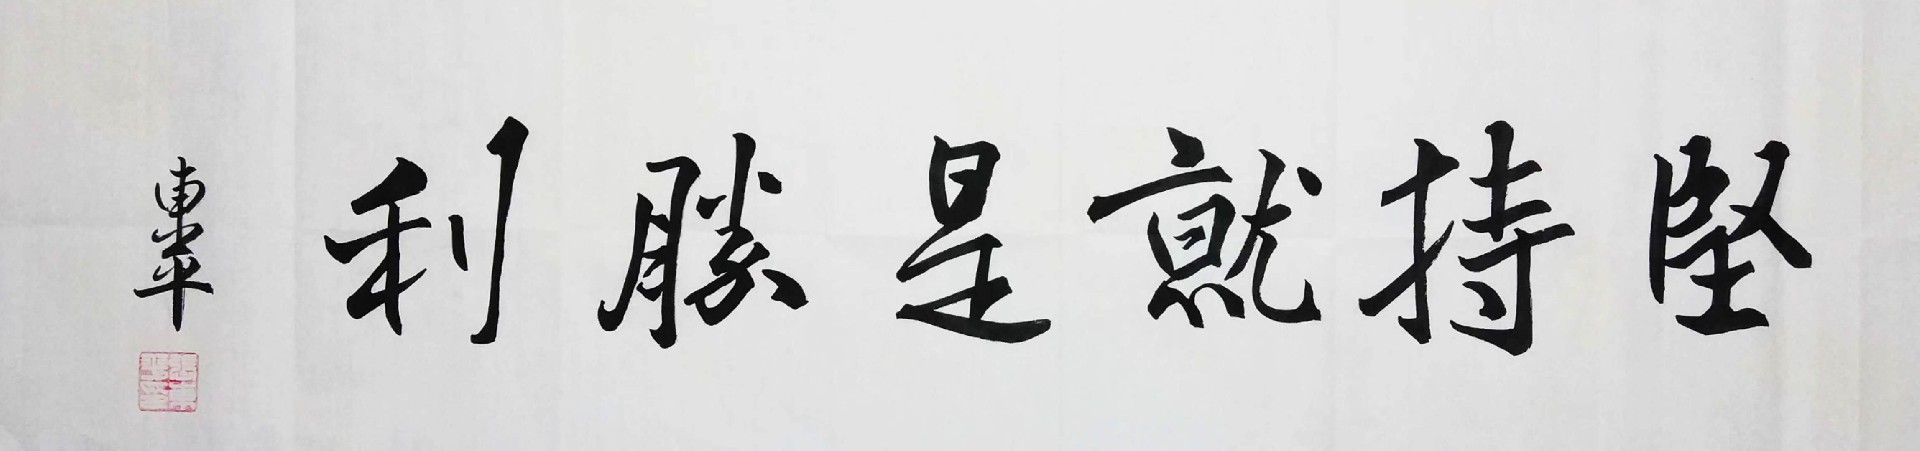 堅持就是勝利